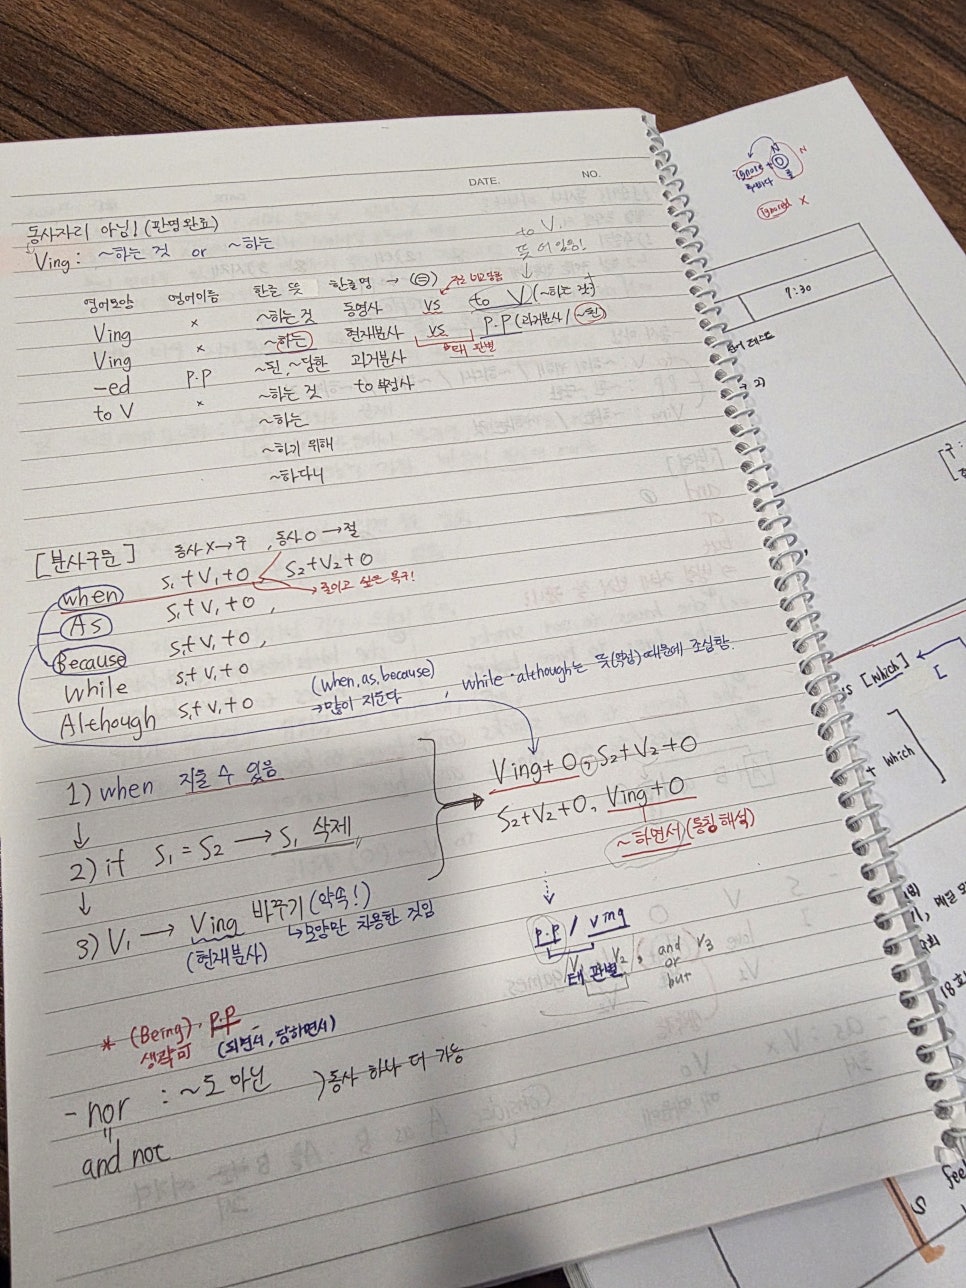 DATE. NO.
동사자리 아님! (판명완료)
Ving : ~하는 것 or ~하는
to V.
뜻 어있음!
영어모양 영어이름 한글 뜻 한글명
Ving × ~하는 것 동명사 vs to V (~하는 것)
Ving × ~하는 현재분사 vs P.P (과거분사 / ~된)
태 판별
-ed P.P ~된 ~당한 과거분사
to V × ~하는 것 to 부정사
~하는
~하기 위해
~하다니
[분사구문] 동사 X → 구, 동사 O → 절
when S₁+V₁+O S₂+V₂+O
→ 줄이고 싶은 욕구!
As S₁+V₁+O,
Because S₁+V₁+O,
while S₁+V₁+O
Although S₁+V₁+O
(when, as, because)
→ 많이 지운다, while·although는 뜻(역접) 때문에 조심함.
1) when 지울 수 있음
↓
2) if S₁ = S₂ → S₁ 삭제
↓
3) V₁ → Ving 바꾸기 (약속!)
(현재분사) ↳ 모양만 차용한 것임
Ving+O, S₂+V₂+O
S₂+V₂+O, Ving+O
~하면서 (특징 해석)
P.P / Ving
태 판별
V₂, and V₃
or
but
* (Being) · P.P
생략可 (되면서, 당하면서)
- nor : ~도 아닌 ) 동사 하나 더 가능
=
and not
ignore + N
ignored X
7:30
2)
S [which]
+ which